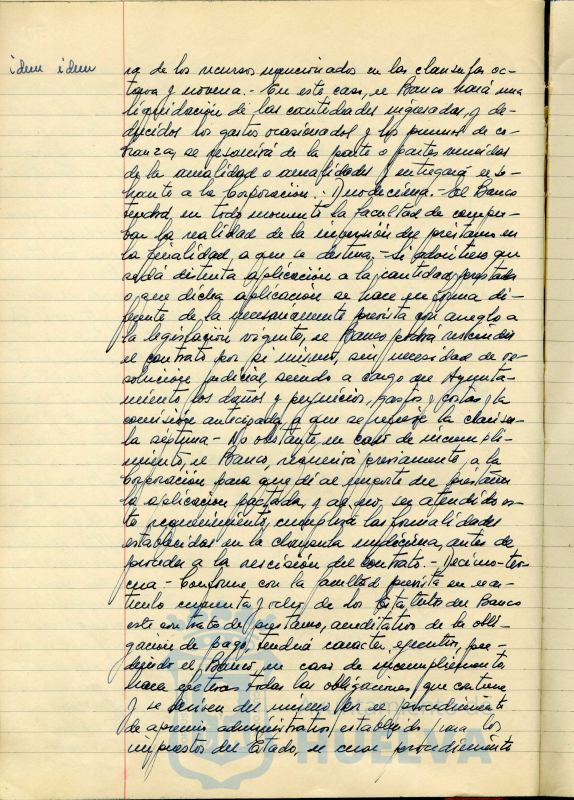 idem idem
ra de los recursos mencionados en las clausulas oc-
tava y novena.- En este caso, el Banco hará una
liquidación de las cantidades ingresadas, y de-
ducidos los gastos ocasionados y los premios de co-
branza, se resarcirá de la parte o partes vencidas
de la anualidad o anualidades y entregará el so-
brante a la Corporación.- Duodecima.- El Banco
tendrá en todo momento la facultad de compro-
bar la realidad de la inversión del préstamo en
la finalidad a que se destina.- Si advirtiera que
se dá distinta aplicación a la cantidad prestada
o que dicha aplicación se hace en forma di-
ferente de la necesariamente prevista con arreglo a
la legislación vigente, el Banco podrá rescindir
el contrato por si mismo, sin necesidad de re-
solución judicial, siendo a cargo del Ayunta-
miento los daños y perjuicios, gastos y costas y la
comisión anticipada a que se refiere la clausu-
la séptima.- No obstante, en caso de incumpli-
miento, el Banco, requerirá previamente a la
Corporación para que dé al importe del préstamo
la aplicación pactada, y al no ser atendido es-
te requerimiento, cumplirá las formalidades
establecidas en la clausula undécima, antes de
proceder a la rescisión del contrato.- Decimo-ter-
cera.- Conforme con la facultad prevista en el ar-
tículo cincuenta y ocho de los Estatutos del Banco
este contrato de préstamo, acreditativo de la obli-
gación de pago, tendrá caracter ejecutivo, pu-
diendo el Banco, en caso de incumplimiento
hacer efectivas todas las obligaciones que contiene
y se deriven del mismo por el procedimiento
de apremio administrativo establecido para los
impuestos del Estado, el cual procedimiento
HUELVA